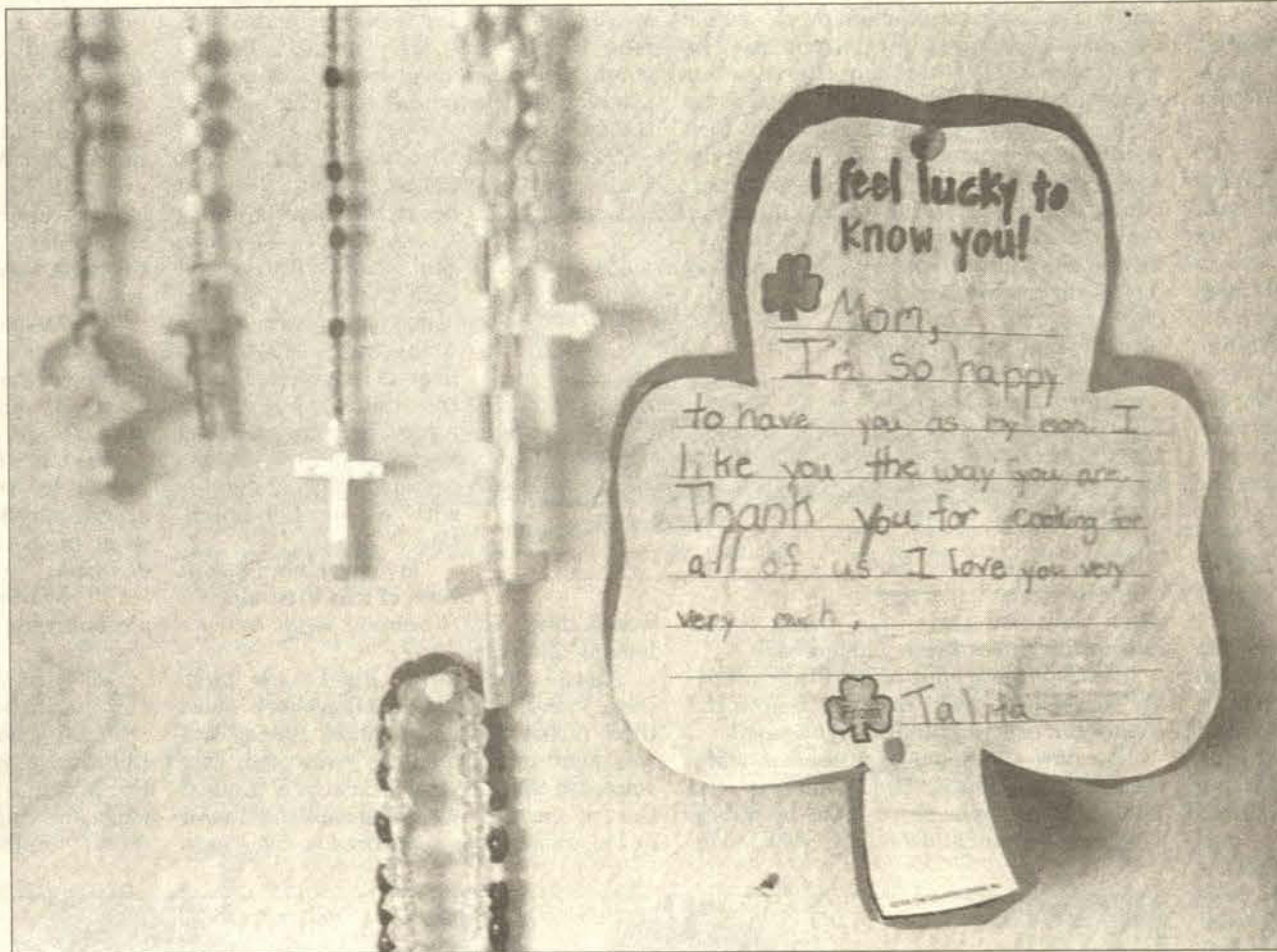 I feel lucky to
know you!
Mom,
I'm so happy
to have you as my mom. I
like you the way you are.
Thank you for cooking for
all of us I love you very
very much,
Talita